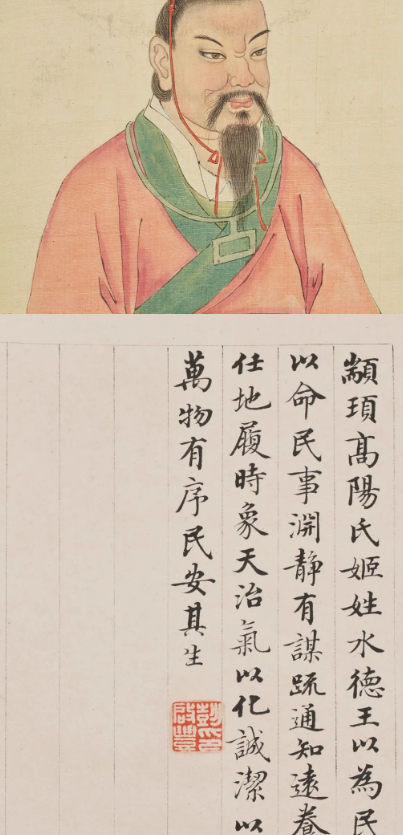 顓頊髙陽氏姬姓水德王以為民
以命民事淵静有謀疏通知遠養
任地履時象天治氣以化誠潔以
萬物有序民安其生
彭印
啟豐